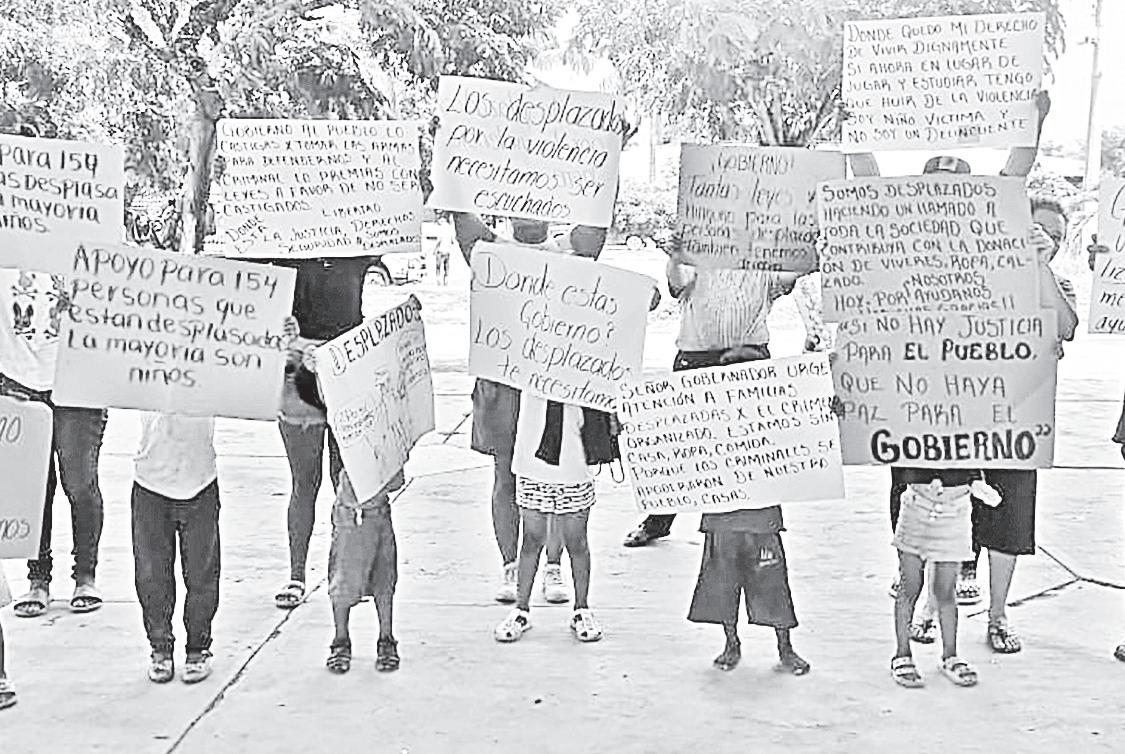 para 154
as desplasa
a mayoria
niños.
GOBIERNO AL PUEBLO LO
CASTIGAS X TOMAR LAS ARMAS
PARA DEFENDERNOS Y AL
CRIMINAL LO PREMIAS CON
LEYES A FAVOR DE NO SER
CASTIGADOS LIBERTAD
DONDE
ESTA LA JUSTICIA, DERECHOS
SEGURIDAD
Los desplazado
por la violencia
necesitamos ser
escuchados
¡GOBIERNO!
Tantas leyes y
ninguna para las
tambien tenemos
DONDE QUEDO MI DERECHO
DE VIVIR DIGNAMENTE
SI AHORA EN LUGAR DE
JUGAR Y ESTUDIAR TENGO
QUE HUIR DE LA VIOLENCIA
SOY NIÑO VICTIMA Y
NO SOY UN DELINCUENTE
SOMOS DESPLAZADOS
HACIENDO UN LLAMADO A
TODA LA SOCIEDAD QUE
CONTRIBUYA CON LA DONACI
ON DE VIVERES, ROPA, CAL-
ZADO.
HOY, POR NOSOTROS
AYUDANOS
APOYO para 154
personas que
estan desplusada
La mayoria son
niños.
DESPLAZADOS
Donde estas
Gobierno?
Los desplazados
te necesitamo
SEÑOR GOBERNADOR URGE
ATENCIÓN A FAMILIAS
DESPLAZADAS X EL CRIMEN
ORGANIZADO. ESTAMOS SIN
CASA, ROPA, COMIDA.
PORQUE LOS CRIMINALES SE
APODERARON DE NUESTRO
PUEBLO, CASAS.
"SI NO HAY JUSTICIA
PARA EL PUEBLO,
QUE NO HAYA
PAZ PARA EL
GOBIERNO"